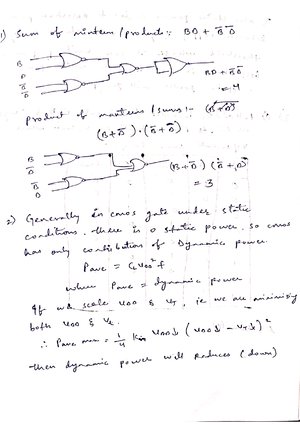 1) Sum of minterm / products :- BD + B̅ D̅
B
D
B̅
D̅
BD + B̅D̅
= 4
product of maxterms / sums :-
(B + D̅) · (B̅ + D)
B
D̅
B̅
D
(B + D̅) (B̅ + D)
= 3
2) Generally in cmos gate under static
conditions. there is 0 static power, so cmos
has only contribution of Dynamic power.
Pave = CL VDD² f
where Pave = dynamic power
If we scale VDD & VT, ie we are minimising
both VDD & Vt.
∴ Pave = 1/4 K VDD↓ (VDD↓ - VT↓)²
then dynamic power will reduces (down)